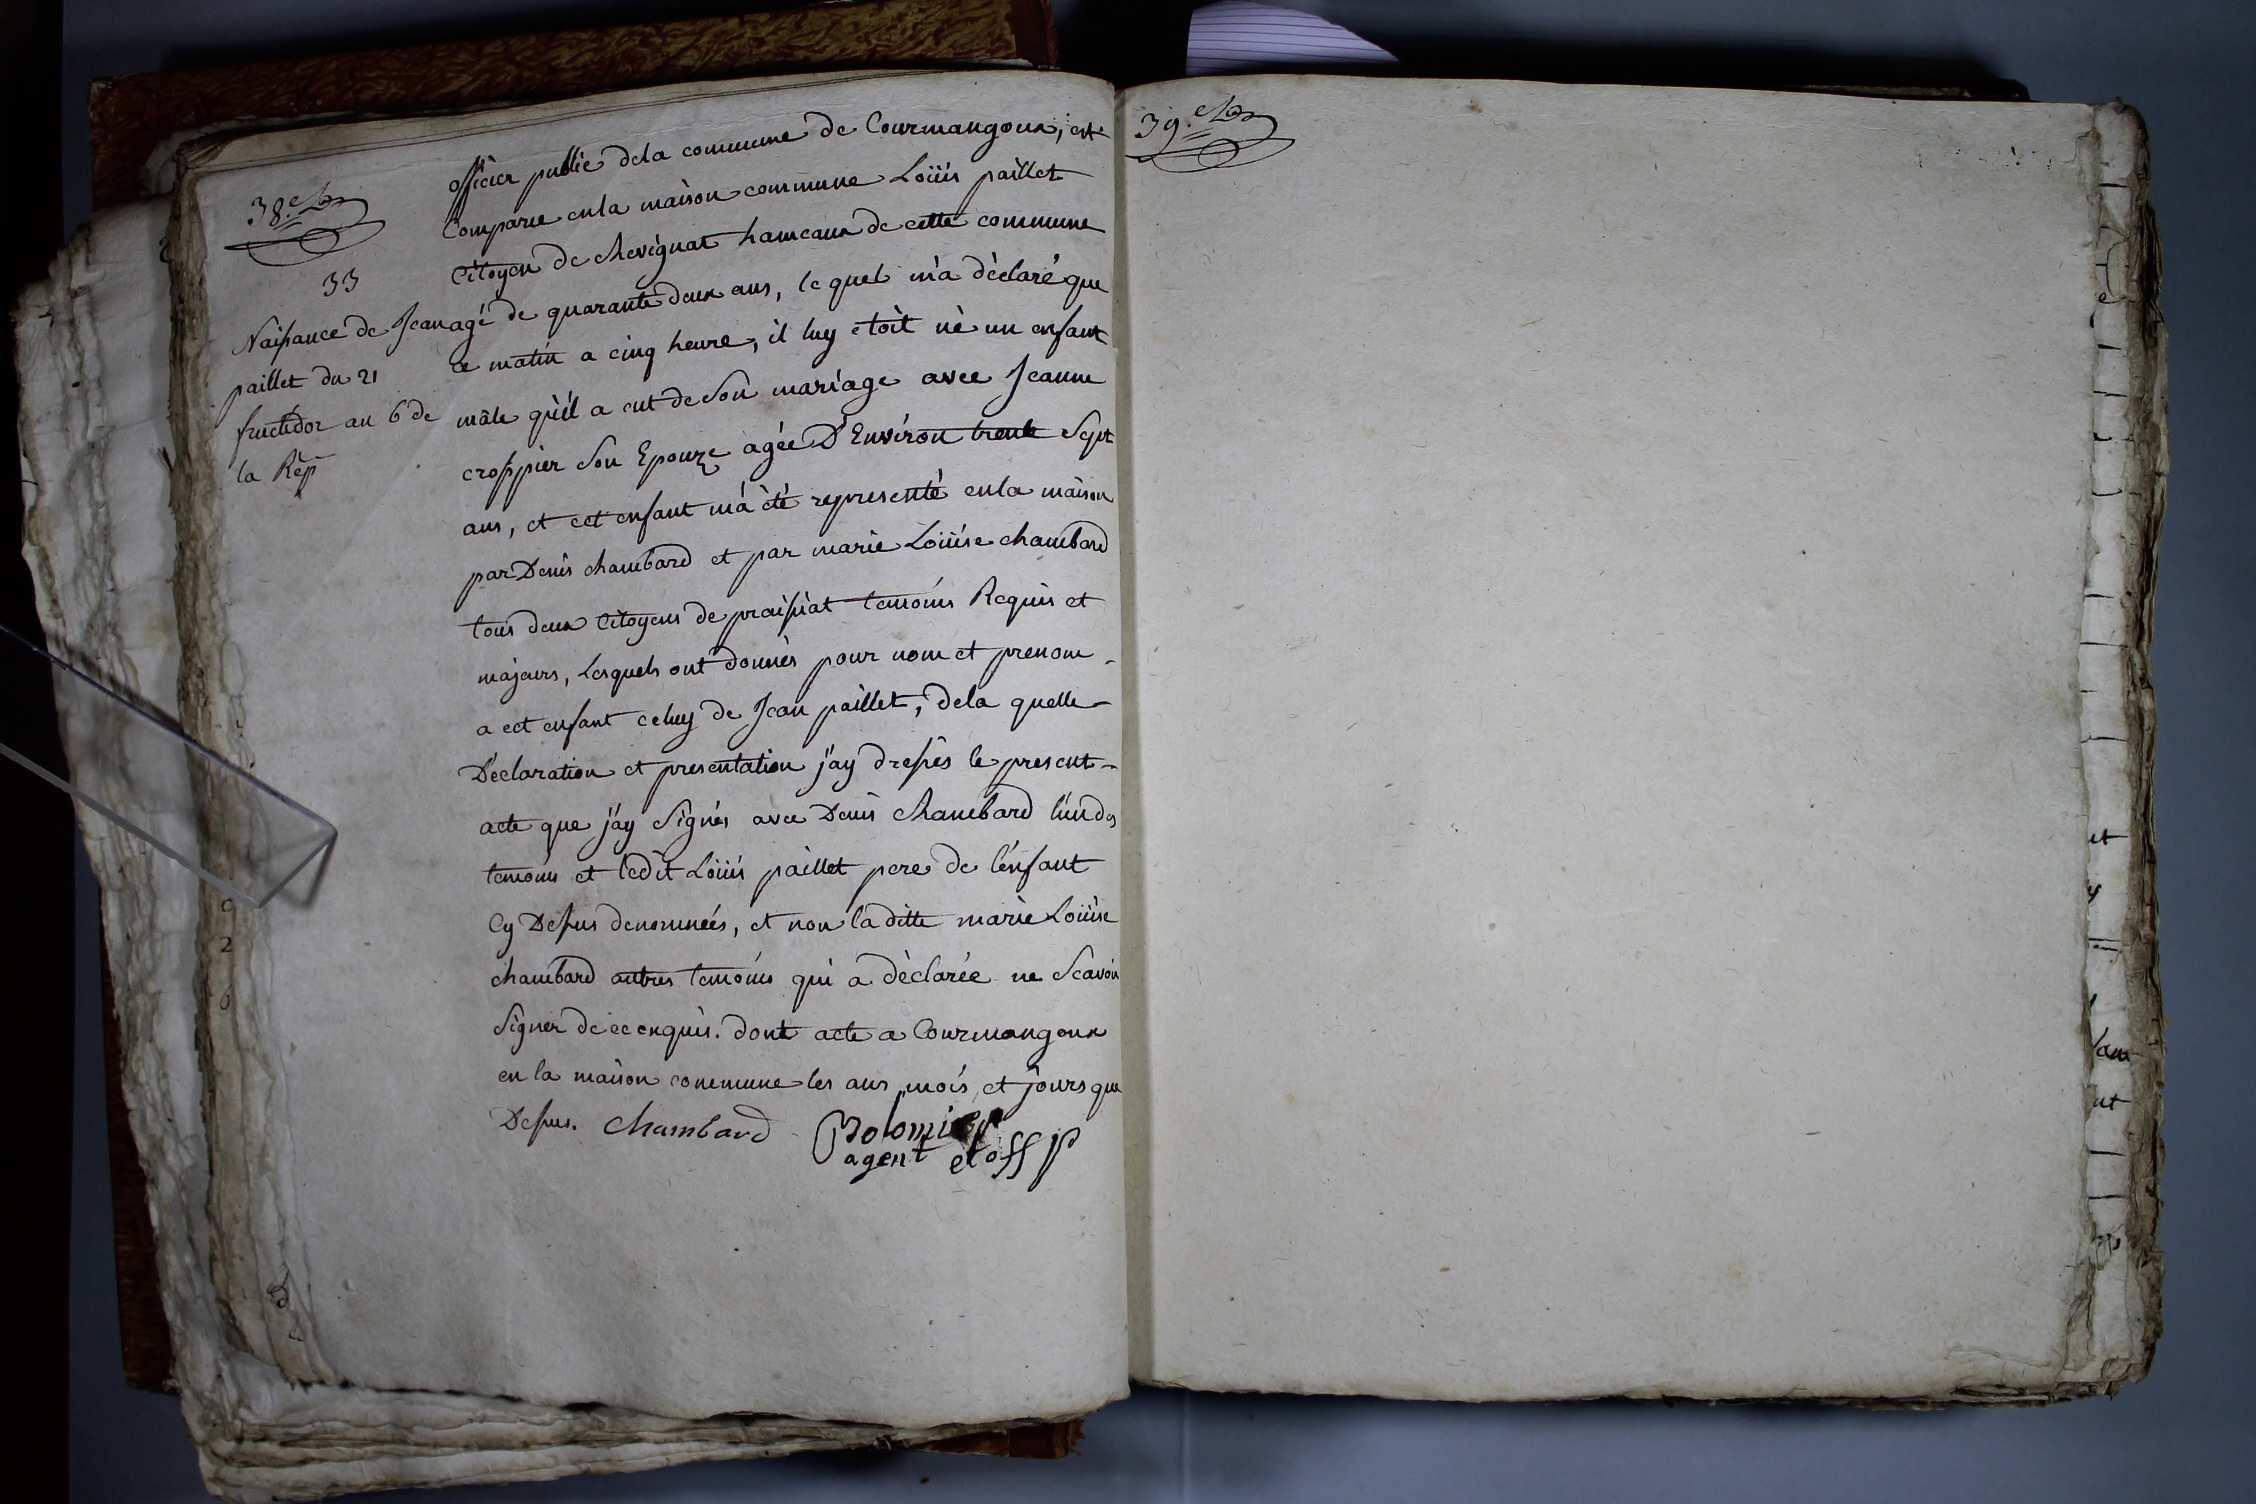 38.e
33
Naissance de Jean
paillet du 21
fructidor an 6 de
la Rép
officier public dela commune de Courmangoux, est
Comparu enla maison commune Loüis paillet
Citoyen de chevignat hameaux de cette commune
agé de quarante deux ans, le quel m'a déclaré que
ce matin a cinq heure, il luy etoit né un enfant
mâle qu'il a eut de son mariage avec Jeanne
croppier son Epouze agée D'Environ trente sept
ans, et cet enfant m'a été representé enla maison
par Denis chambard et par marie Loüise chambard
tous deux Citoyens de praissiat temoins Requis et
majeurs, Lesquels ont donnés pour nom et prenom
a cet enfant celuy de Jean paillet, dela quelle
Déclaration et presentation j'ay dressés le present
acte que j'ay signés avec Denis chambard l'un des
temoins et ledit Loüis paillet pere de l'enfant
Cy Dessus denommées, et non la ditte marie Loüise
chambard autres temoins qui a déclarée ne scavoir
signer de ce enquis. dont acte a Courmangoux
en la maison commune les ans, mois, et jours que
Dessus. Chambard Bolomier
agent et off p
39.e